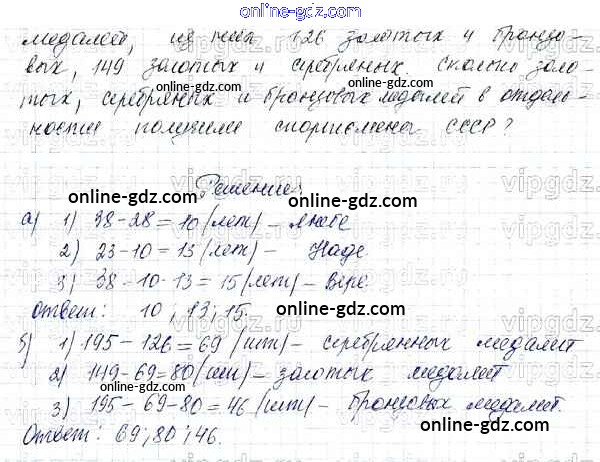 online-gdz.com
медалей, из них 126 золотых и бронзо-
вых, 149 золотых и серебряных. Сколько золо-
тых, серебряных и бронзовых медалей в отдель-
ности получили спортсмены СССР?
Решение:
а) 1) 38-28=10 (лет) – Любе
2) 23-10=13 (лет) – Наде
3) 38-10-13=15 (лет) – Вере
Ответ: 10; 13; 15.
б) 1) 195-126=69 (шт) – серебрянных медалей
2) 149-69=80 (шт) – золотых медалей
3) 195-69-80=46 (шт) – бронзовых медалей.
Ответ: 69; 80; 46.